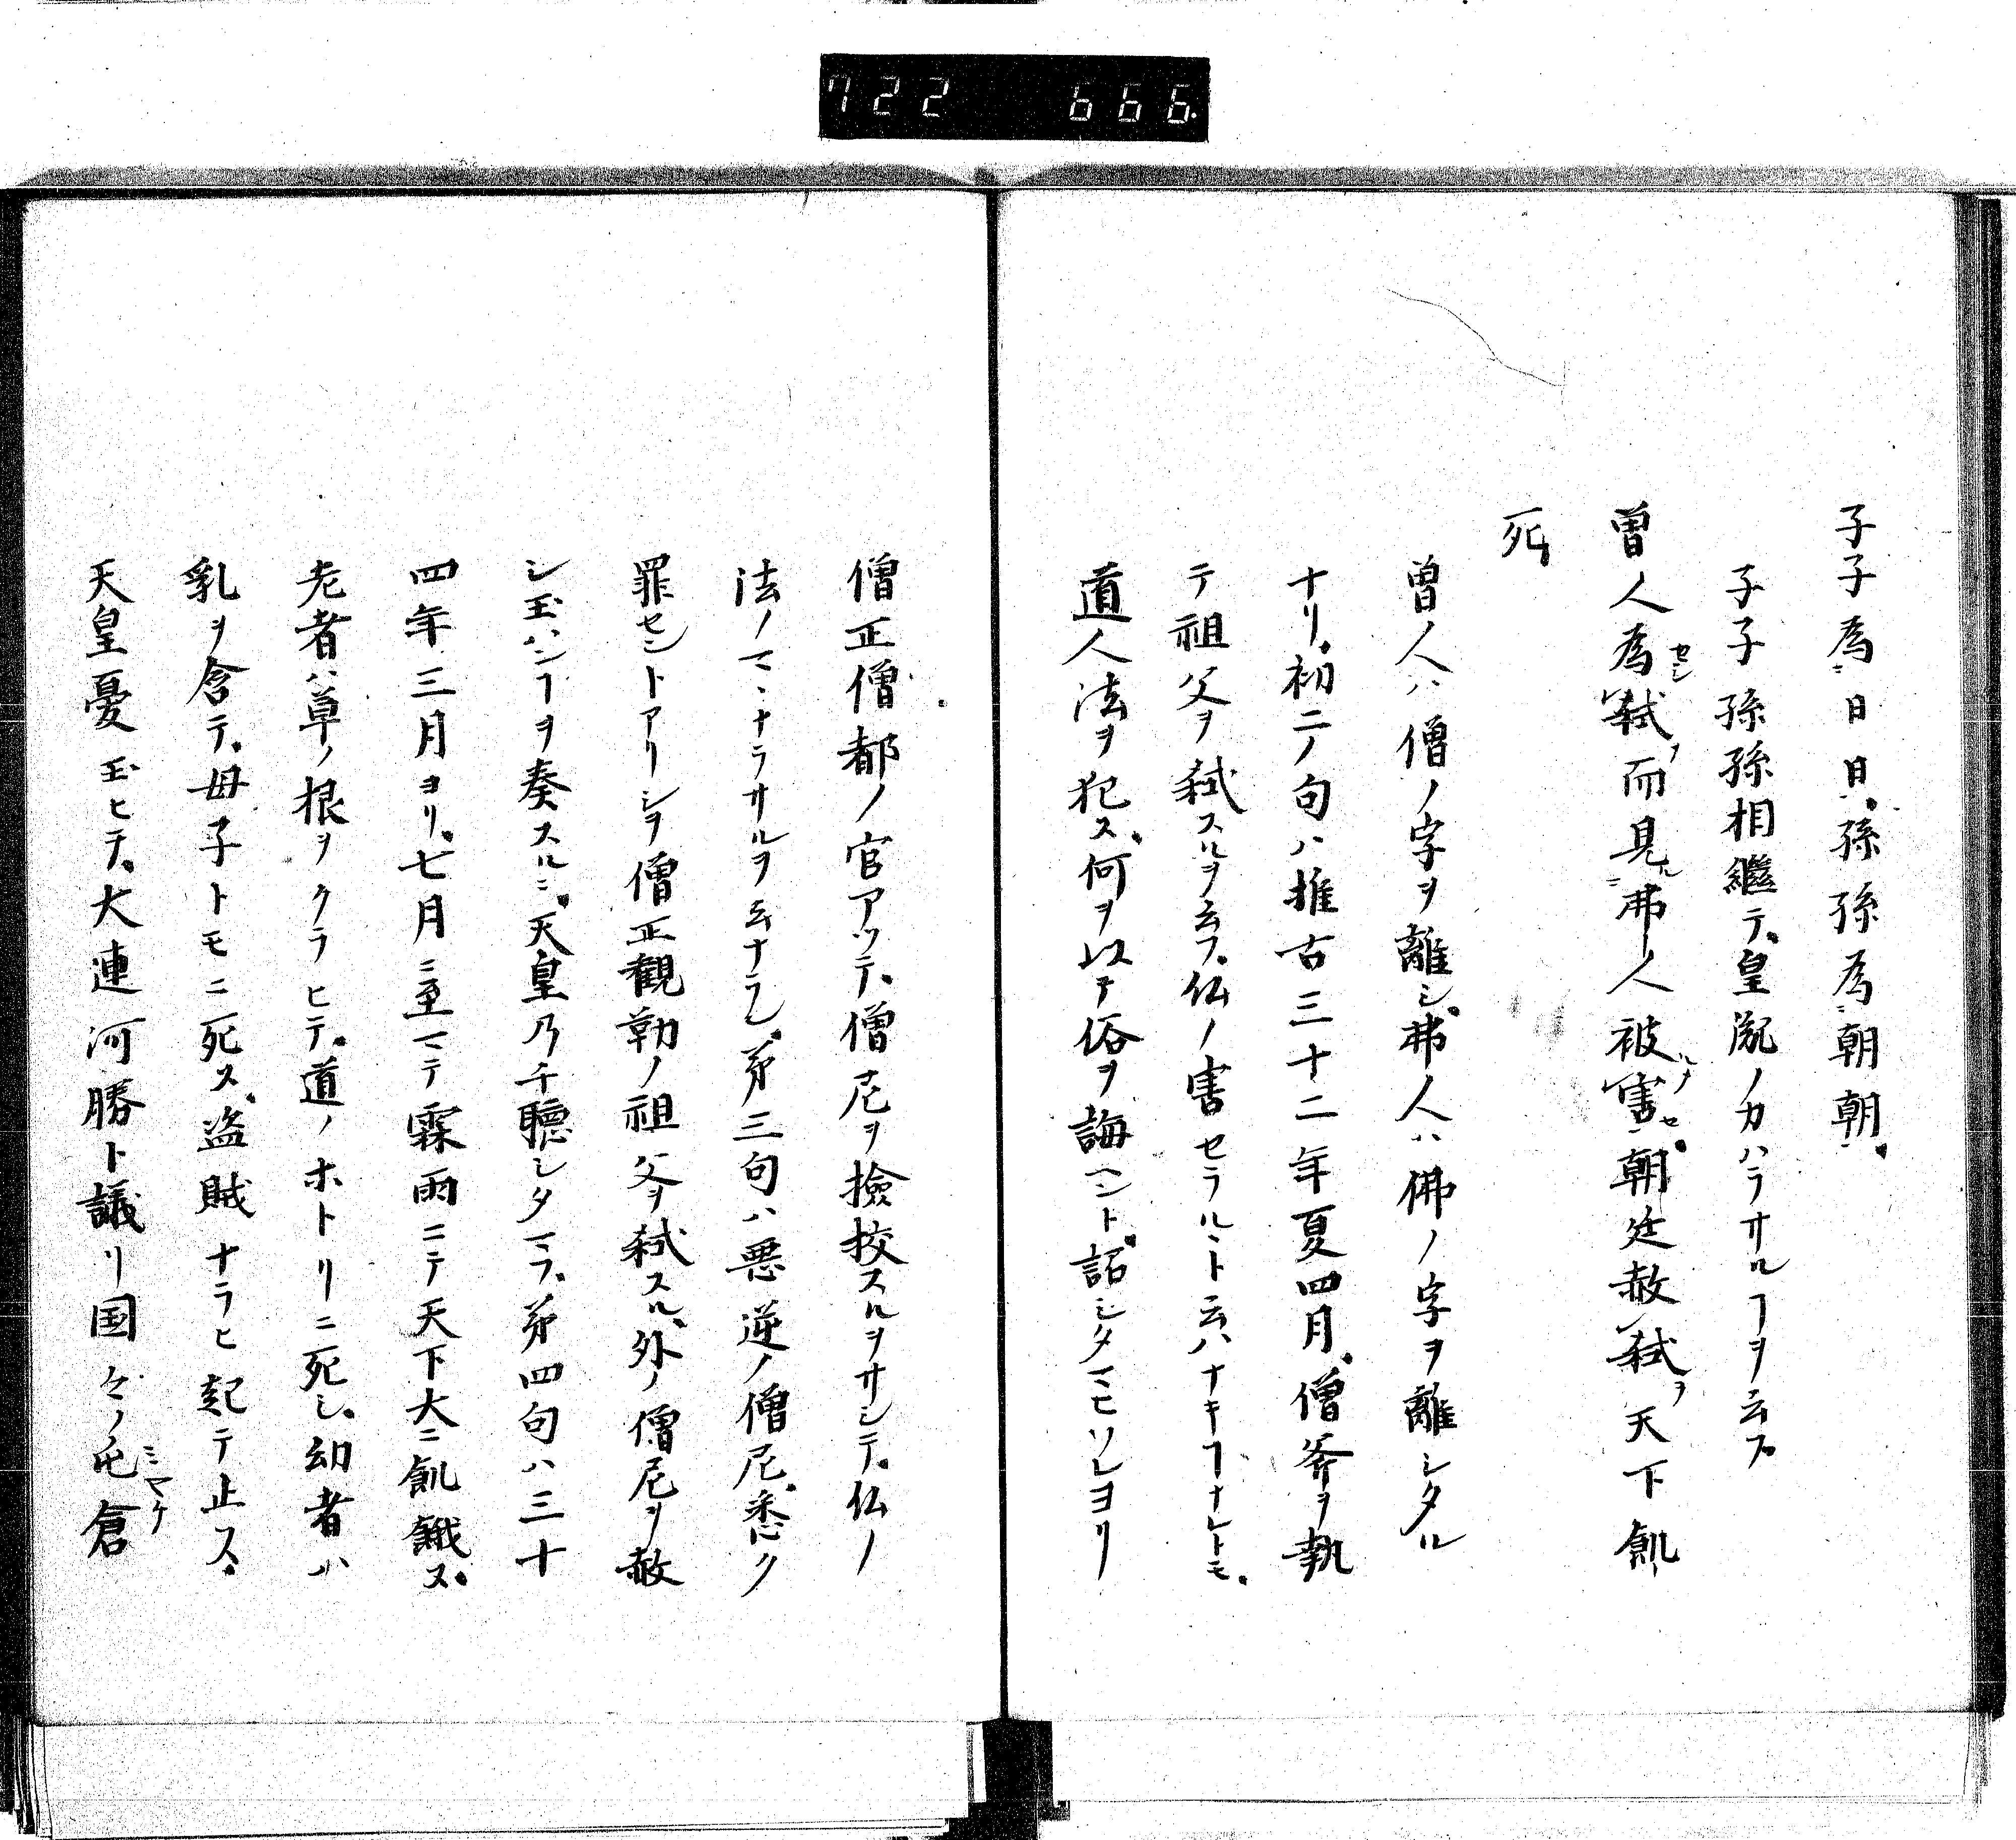 722 666
子子為ニ日日ニ孫孫為ニ朝朝ニ
子子孫孫相繼テ皇胤ノカハラサルヿヲ云フ
曽人為セシ弑ヲ而見ルニ弗人被害セ朝廷赦弑ヲ天下飢
死
曽人ハ僧ノ字ヲ離シ弗人ハ佛ノ字ヲ離シタル
ナリ初二ノ句ハ推古三十二年夏四月僧斧ヲ執
テ祖父ヲ弑スルヲ云フ仏ノ害セラルヽト云ハナキヿナレトモ
道人法ヲ犯ス何ヲ以テ俗ヲ誨ヘント詔シタマヒソレヨリ
僧正僧都ノ官アツテ僧尼ヲ撿挍スルヲサシテ仏ノ
法ノマヽナラサルヲ云ナラン第三句ハ悪逆ノ僧尼悉ク
罪セントアリシヲ僧正観勒ノ祖父ヲ弑スル外ノ僧尼ヲ赦
シ玉ハンヿヲ奏スルニ天皇乃チ聴シタマフ第四句ハ三十
四年三月ヨリ七月ニ至マテ霖雨ニテ天下大ニ飢饑ス
老者ハ草ノ根ヲクラヒテ道ノホトリニ死シ幼者ハ
乳ヲ含テ母子トモニ死ス盗賊ナラヒ起テ止ス
天皇憂玉ヒテ大連河勝ト議リ国々ノ屯倉ミヤケ